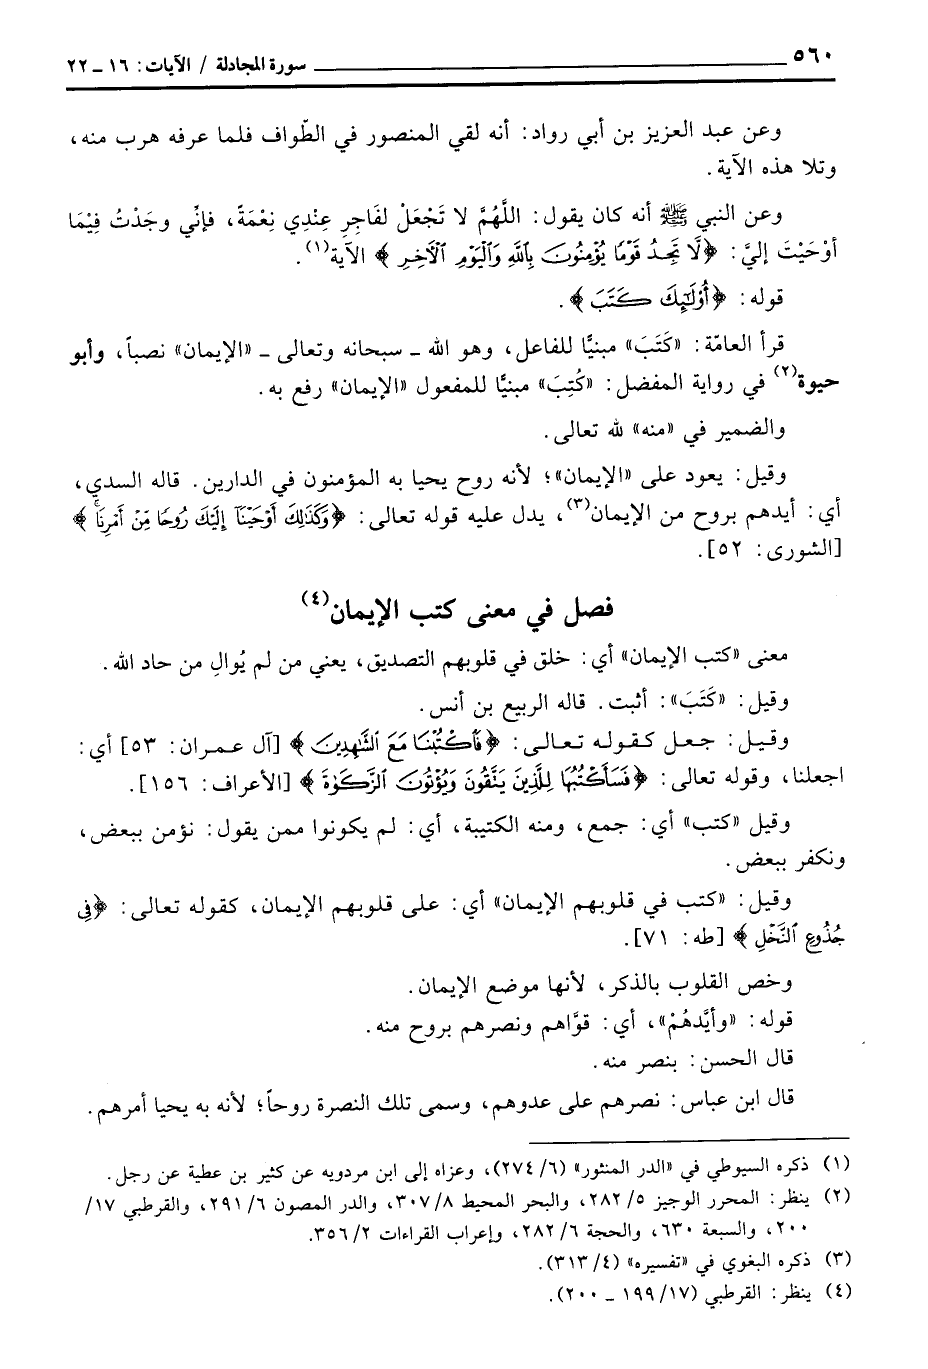 ٥٦٠ سورة المجادلة / الآيات: ١٦ ـ ٢٢
وعن عبد العزيز بن أبي رواد: أنه لقي المنصور في الطّواف فلما عرفه هرب منه،
وتلا هذه الآية.
وعن النبي ﷺ أنه كان يقول: اللَّهُمَّ لا تَجْعَلْ لفَاجِرٍ عِنْدِي نِعْمَةً، فإنِّي وجَدْتُ فِيْمَا
أوْحَيْتَ إليَّ: ﴿لَّا تَجِدُ قَوْمًا يُؤْمِنُونَ بِٱللَّهِ وَٱلْيَوْمِ ٱلْأَخِرِ﴾ الآية(١).
قوله: ﴿أُوْلَٰٓئِكَ كَتَبَ﴾.
قرأ العامّة: «كَتَبَ» مبنيًّا للفاعل، وهو الله ـ سبحانه وتعالى ـ «الإيمان» نصباً، وأبو
حيوة(٢) في رواية المفضل: «كُتِبَ» مبنيًّا للمفعول «الإيمان» رفع به.
والضمير في «منه» لله تعالى.
وقيل: يعود على «الإيمان»؛ لأنه روح يحيا به المؤمنون في الدارين. قاله السدي،
أي: أيدهم بروح من الإيمان(٣)، يدل عليه قوله تعالى: ﴿وَكَذَٰلِكَ أَوْحَيْنَآ إِلَيْكَ رُوحًا مِّنْ أَمْرِنَا﴾
[الشورى: ٥٢].
فصل في معنى كتب الإيمان(٤)
معنى «كتب الإيمان» أي: خلق في قلوبهم التصديق، يعني من لم يُوالِ من حاد الله.
وقيل: «كَتَبَ»: أثبت. قاله الربيع بن أنس.
وقيل: جعل كقوله تعالى: ﴿فَٱكْتُبْنَا مَعَ ٱلشَّٰهِدِينَ﴾ [آل عمران: ٥٣] أي:
اجعلنا، وقوله تعالى: ﴿فَسَأَكْتُبُهَا لِلَّذِينَ يَتَّقُونَ وَيُؤْتُونَ ٱلزَّكَوٰةَ﴾ [الأعراف: ١٥٦].
وقيل «كتب» أي: جمع، ومنه الكتيبة، أي: لم يكونوا ممن يقول: نؤمن ببعض،
ونكفر ببعض.
وقيل: «كتب في قلوبهم الإيمان» أي: على قلوبهم الإيمان، كقوله تعالى: ﴿فِى
جُذُوعِ ٱلنَّخْلِ﴾ [طه: ٧١].
وخص القلوب بالذكر، لأنها موضع الإيمان.
قوله: «وأيَّدهُمْ»، أي: قوَّاهم ونصرهم بروح منه.
قال الحسن: بنصر منه.
قال ابن عباس: نصرهم على عدوهم، وسمى تلك النصرة روحاً؛ لأنه به يحيا أمرهم.
(١) ذكره السيوطي في «الدر المنثور» (٦/ ٢٧٤)، وعزاه إلى ابن مردويه عن كثير بن عطية عن رجل.
(٢) ينظر: المحرر الوجيز ٥/ ٢٨٢، والبحر المحيط ٨/ ٣٠٧، والدر المصون ٦/ ٢٩١، والقرطبي ١٧/
٢٠٠، والسبعة ٦٣٠، والحجة ٦/ ٢٨٢، وإعراب القراءات ٢/ ٣٥٦.
(٣) ذكره البغوي في «تفسيره» (٤/ ٣١٣).
(٤) ينظر: القرطبي (١٧/ ١٩٩ ـ ٢٠٠).